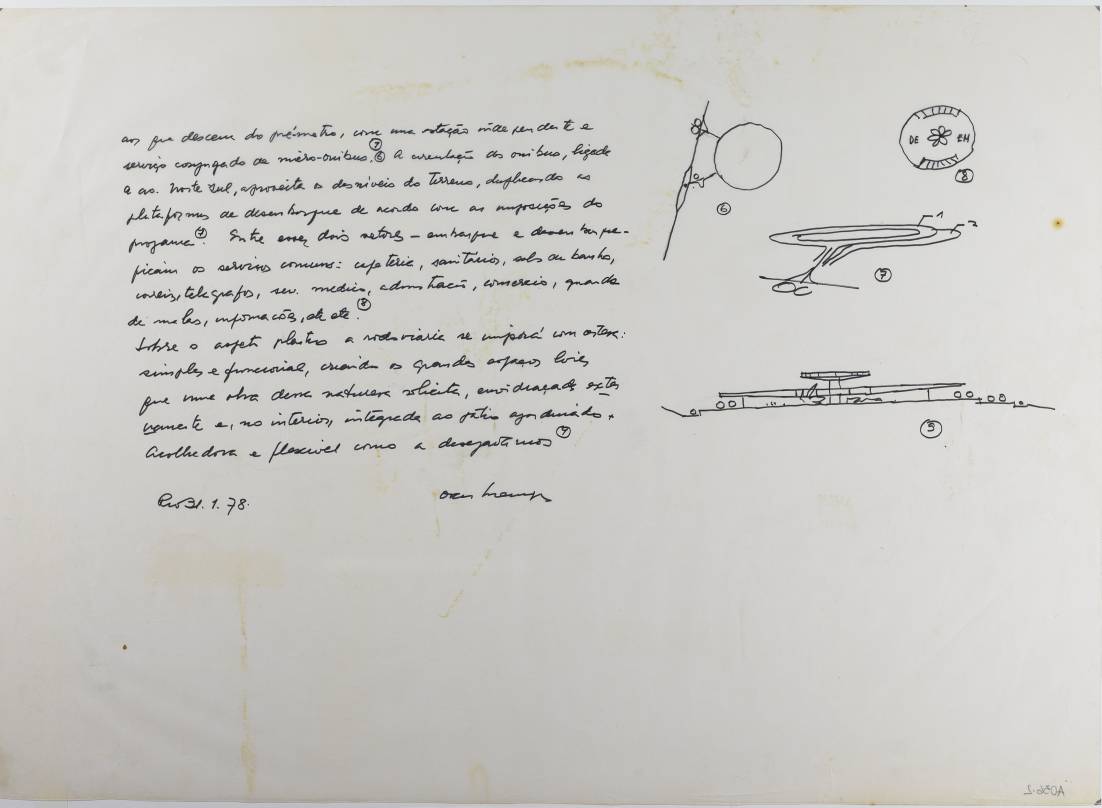 aos que descem do prémetro, com uma rotação independente e
serviço conjugado de micro-onibus. 7 6 A circulação dos onibus, ligada
a av. Norte Sul, aproveita os desniveis do terreno, duplicando as
plataformas de desembarque de acordo com as imposições do
programa. Entre esses dois setores – embarque e desembarque –
ficam os serviços comuns: cafeteria, sanitários, sala de banho,
correios, telegrafos, serv. medico, administração, comercio, guarda
de malas, informações, etc etc. 8
Sobre o aspeto plastico a rodoviaria se imporá com
simples e funcional, criando os grandes espaços livres
que uma obra dessa natureza solicita, envidraçada exter
namente e, no interior, integrada ao pátio ajardinado.
Acolhedora e flexivel como a desejavamos 9
Rio 31.1.78.
6
DE EM
8
1 2
7
9